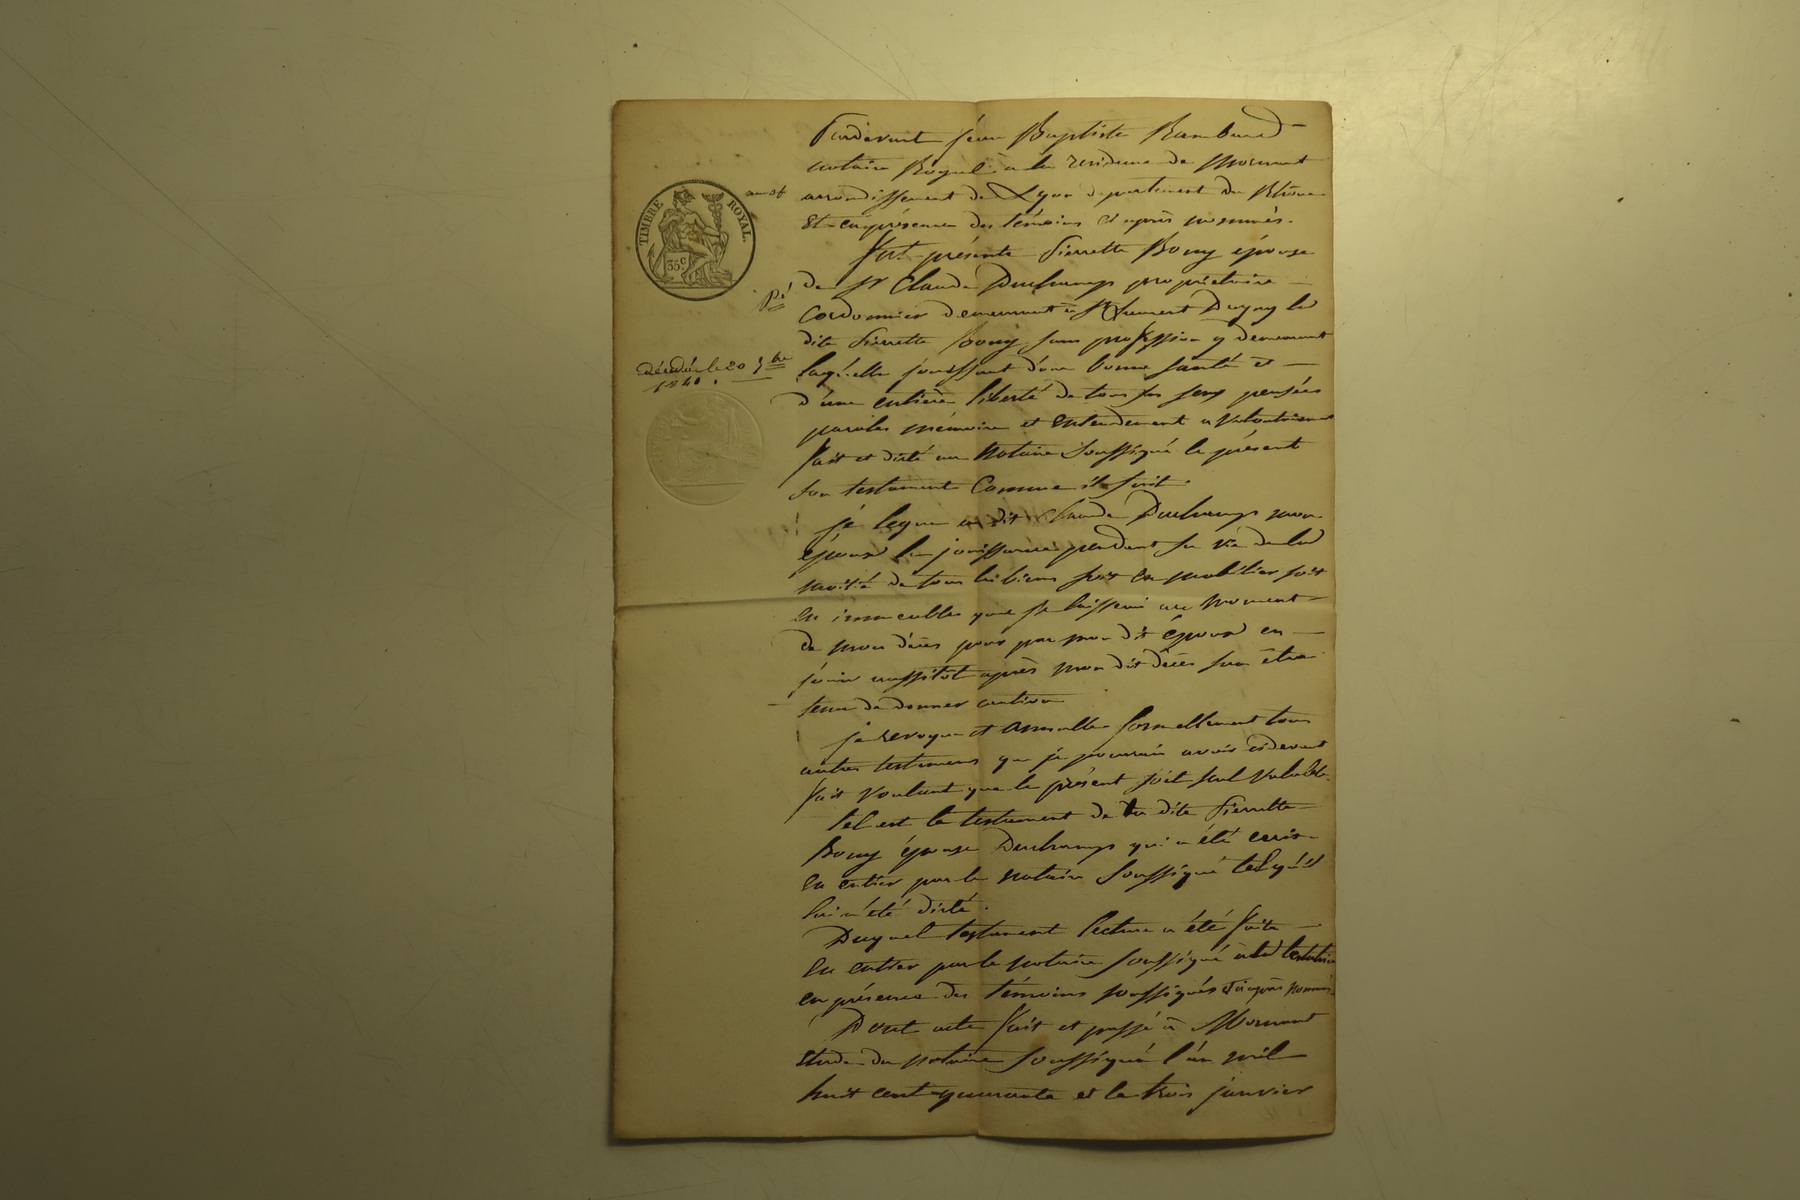 Pardevant jéan Baptiste Rambaud
notaire Royal à la residence de Mornant
arrondissement de Lyon departement du Rhône
Et en présence des témoins ci après nommés.
TIMBRE ROYAL.
35 C
Fut présente Pierrette Bouy épouse
de Sr Claude Duchamp propriétaire
Cordonnier demeurant à St Laurent Dagny la
dite Pierrette Bouy sans profession y demeurant
décédée le 20 7bre
1840.
laquelle jouissant d'une bonne santé et
d'une entière liberté de tous ses sens pensées
paroles mémoire et Entendement a volontairement
fait et dicté au Notaire soussigné le présent
son testament Comme il suit.
jé legue au dit Claude Duchamp mon
époux la jouissance pendant sa vie de la
moitié de tous les biens soit en mobilier soit
en immeubles que je laisserai au moment
de mon décès pour par mon dit époux en
jouir aussitôt après mon dit décès sans être
tenu de donner caution
je revoque et annulle formellement tous
autres testamens que je pourrais avoir cidevant
fait voulant que le présent soit seul valable.
tel est le testament de la dite Pierrette
Bouy épouse Duchamp qui a été écrit
en entier par le notaire soussigné tel qu'il
lui a été dicté.
Duquel testament lecture a été faite
en entier par le notaire soussigné à la testatrice
en présence des témoins soussignés et ci après nommés.
Dont acte fait et passé à Mornant
étude du notaire soussigné l'an mil
huit cent quarante et le trois janvier